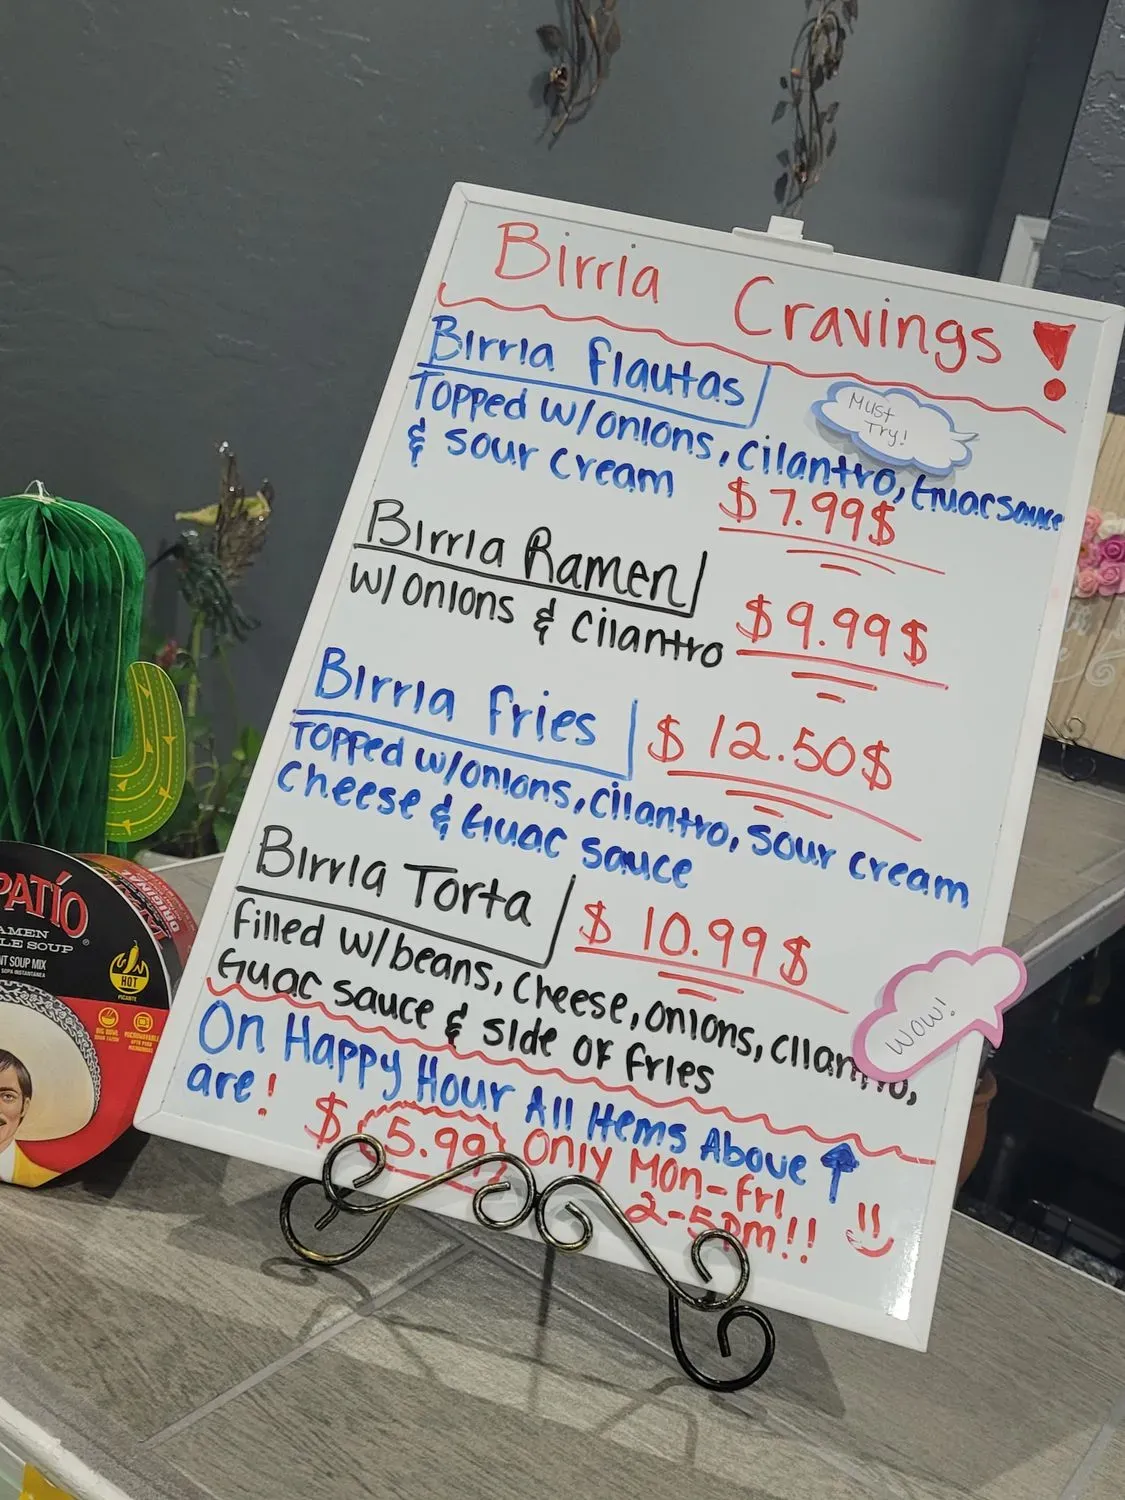 Birria Cravings!
Birria Flautas
Must
Try!
Topped w/onions, cilantro, Guac sauce
& sour cream
$7.99$
Birria Ramen
w/onions & cilantro
$9.99$
Birria Fries
$12.50$
Topped w/onions, cilantro, sour cream
Cheese & Guac sauce
Birria Torta
$10.99$
Filled w/beans, Cheese, onions, cilantro,
Guac sauce & side of fries
WOW!
On Happy Hour All Items Above
are!
$5.99
Only Mon-Fri
2-5pm!!
PATÍO
RAMEN
SOUP
SOUP MIX
SOPA INSTANTANEA
HOT
PICANTE